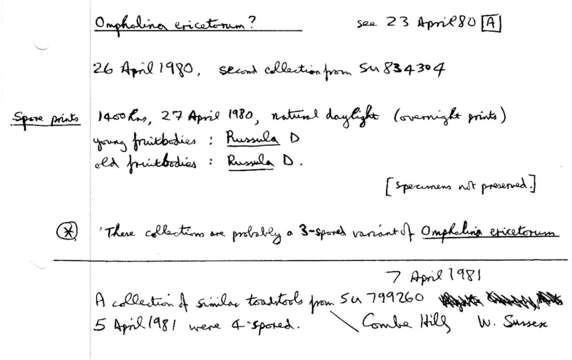 Omphalina ericetorum? see 23 April 80 [A]
26 April 1980, second collection from SU 834304
Spore prints 1400 hrs, 27 April 1980, natural daylight (overnight prints)
young fruitbodies : Russula D
old fruitbodies : Russula D.
[specimens not preserved.]
* 'These collections are probably a 3-spored variant of Omphalina ericetorum
7 April 1981
A collection of similar toadstools from SU 799260
5 April 1981 were 4-spored. Combe Hill, W. Sussex